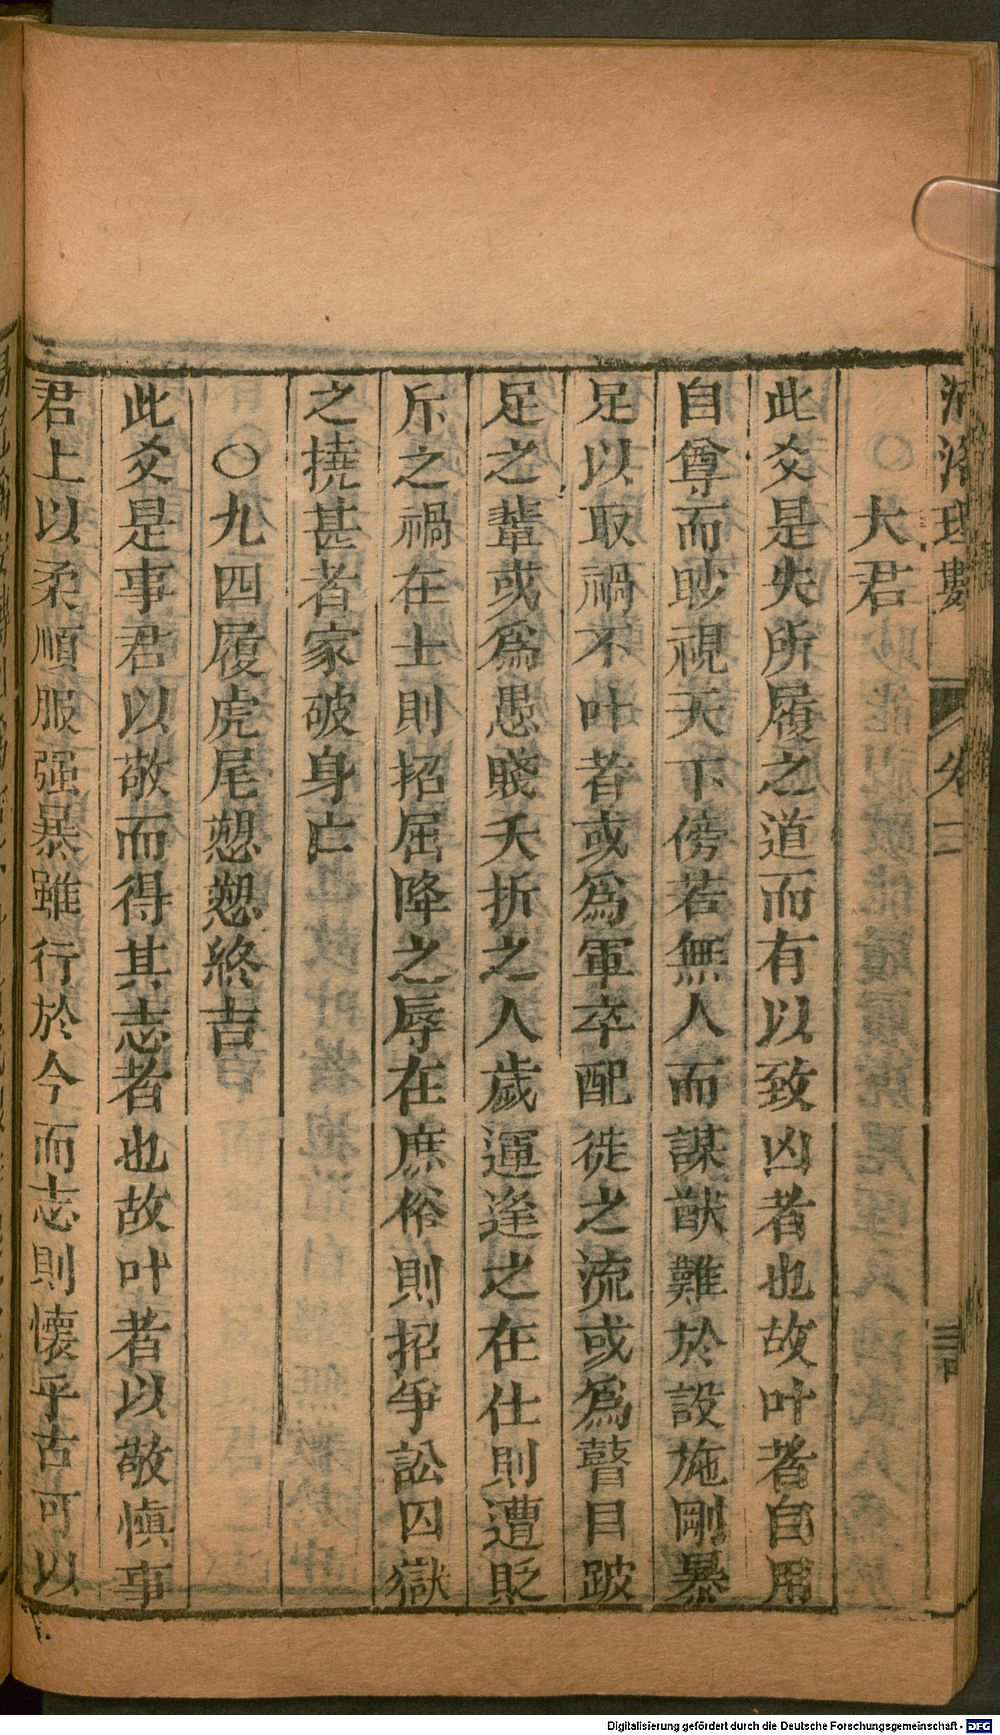 河洛理數 卷二
大君
此爻是失所履之道而有以致凶者也故叶者自用
自尊而眇視天下傍若無人而謀猷難於設施剛暴
足以取禍不叶者或爲軍卒配徙之流或爲瞽目跛
足之輩或爲愚賤夭折之人歲運逢之在仕則遭貶
斥之禍在士則招屈降之辱在庶俗則招爭訟囚獄
之撓甚者家破身亡
○九四履虎尾愬愬終吉
此爻是事君以敬而得其志者也故叶者以敬慎事
君上以柔順服强暴雖行於今而志則懷乎古可以
Digitalisierung gefördert durch die Deutsche Forschungsgemeinschaft - DFG